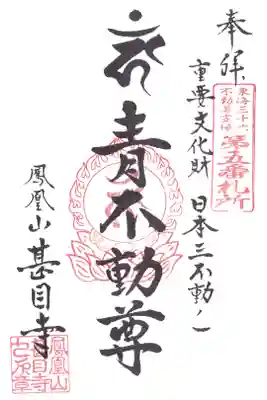 奉拝
東海三十六
不動尊霊場
第五番札所
重要文化財 日本三不動ノ一
青不動尊
鳳凰山 甚目寺
鳳凰山
甚目寺
之章